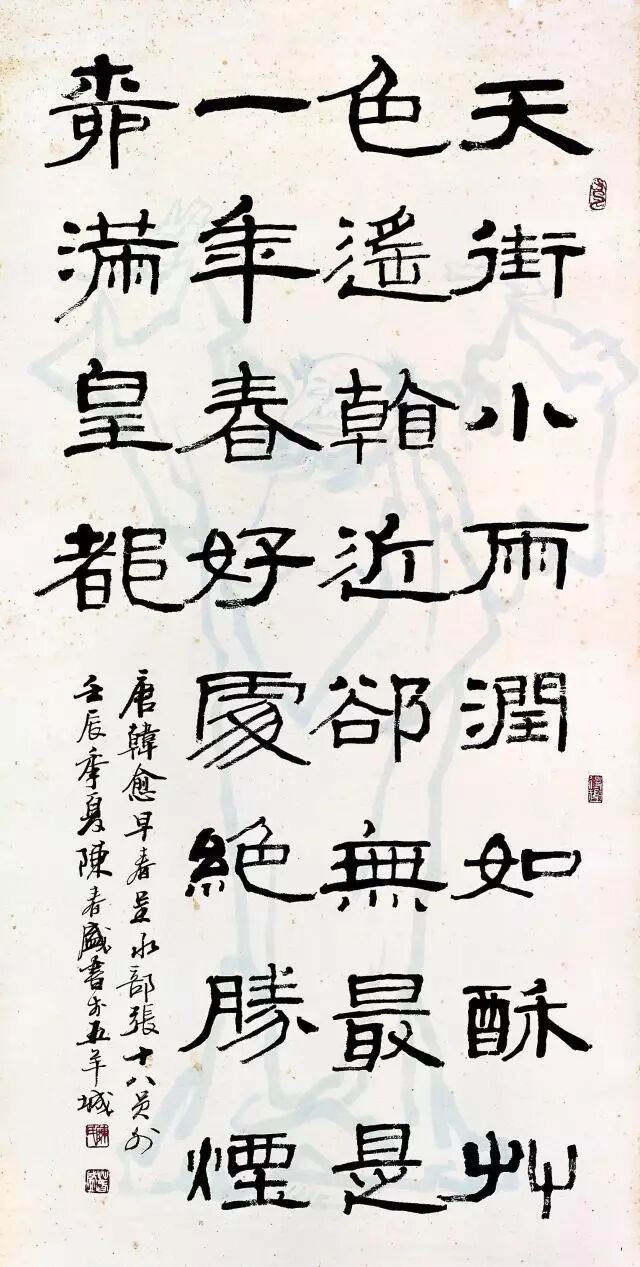 天街小雨潤如酥艸
色遙看近卻無最是
一年春好處絕勝煙
柳滿皇都
唐韓愈早春呈水部張十八員外
壬辰季夏陳春盛書於五羊城